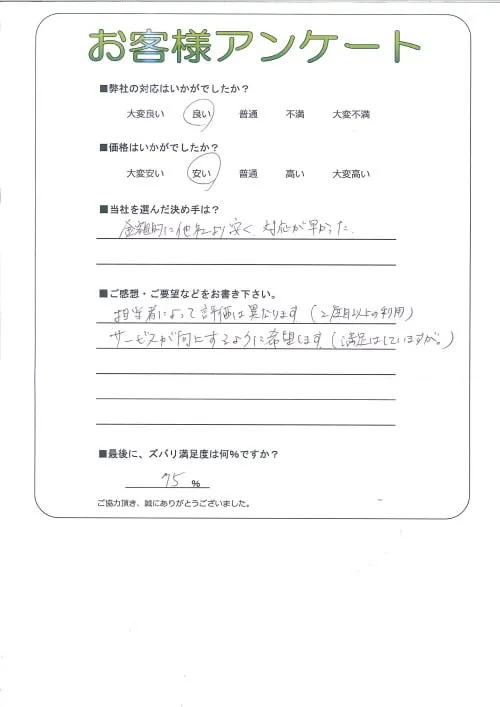 お客様アンケート
■弊社の対応はいかがでしたか？
大変良い 良い 普通 不満 大変不満
■価格はいかがでしたか？
大変安い 安い 普通 高い 大変高い
■当社を選んだ決め手は？
金額的に他社より安く、対応が早かった。
■ご感想・ご要望などをお書き下さい。
担当者によって評価は異なります（2度目以上の利用）
サービスが向上するように希望します（満足はしていますが。）
■最後に、ズバリ満足度は何％ですか？
75 %
ご協力頂き、誠にありがとうございました。